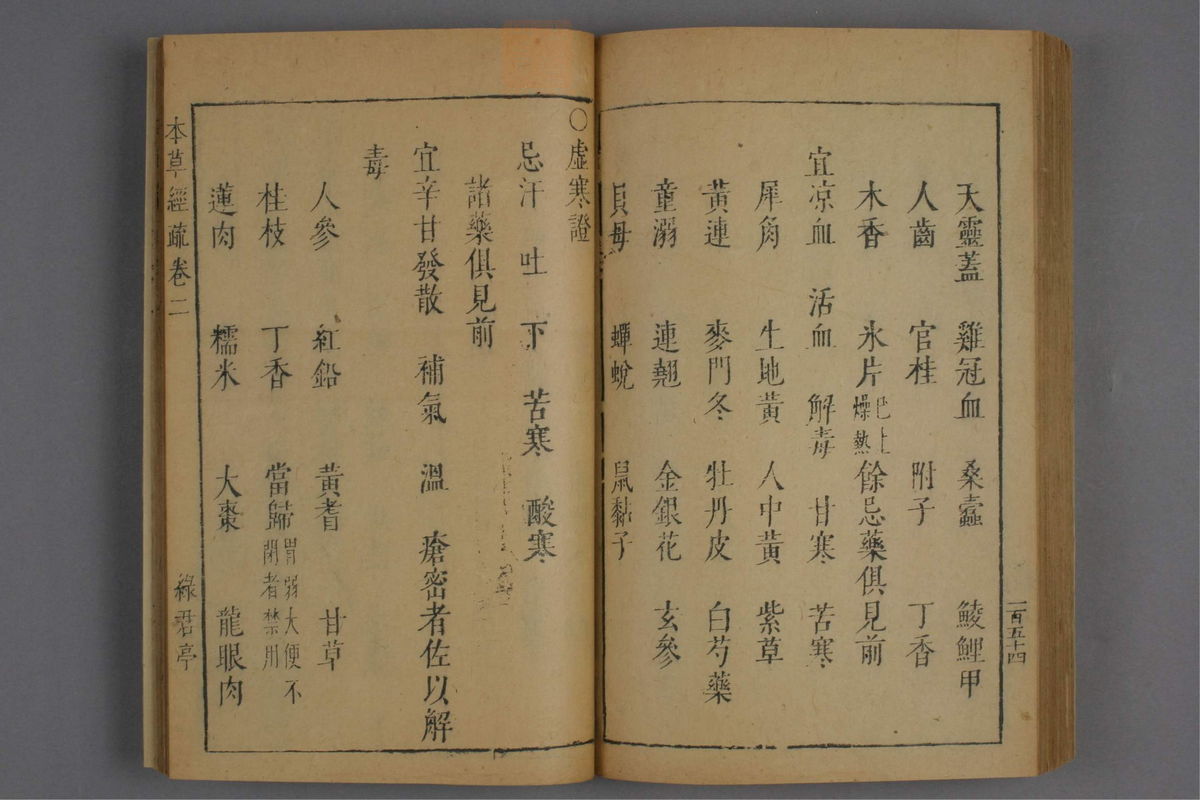 一百五十四
天靈蓋 雞冠血 桑蠹 鯪鯉甲
人齒 官桂 附子 丁香
木香 氷片已上燥熱 餘忌藥俱見前
宜凉血 活血 解毒 甘寒 苦寒
犀角 生地黃 人中黃 紫草
黃連 麥門冬 牡丹皮 白芍藥
童溺 連翹 金銀花 玄參
貝母 蟬蛻 鼠黏子
○虛寒證
忌汗 吐 下 苦寒 酸寒
諸藥俱見前
宜辛甘發散 補氣 溫 瘡密者佐以解
毒
人參 紅鉛 黃耆 甘草
桂枝 丁香 當歸胃弱大便不閉者禁用
蓮肉 糯米 大棗 龍眼肉
本草經疏卷二 綠君亭